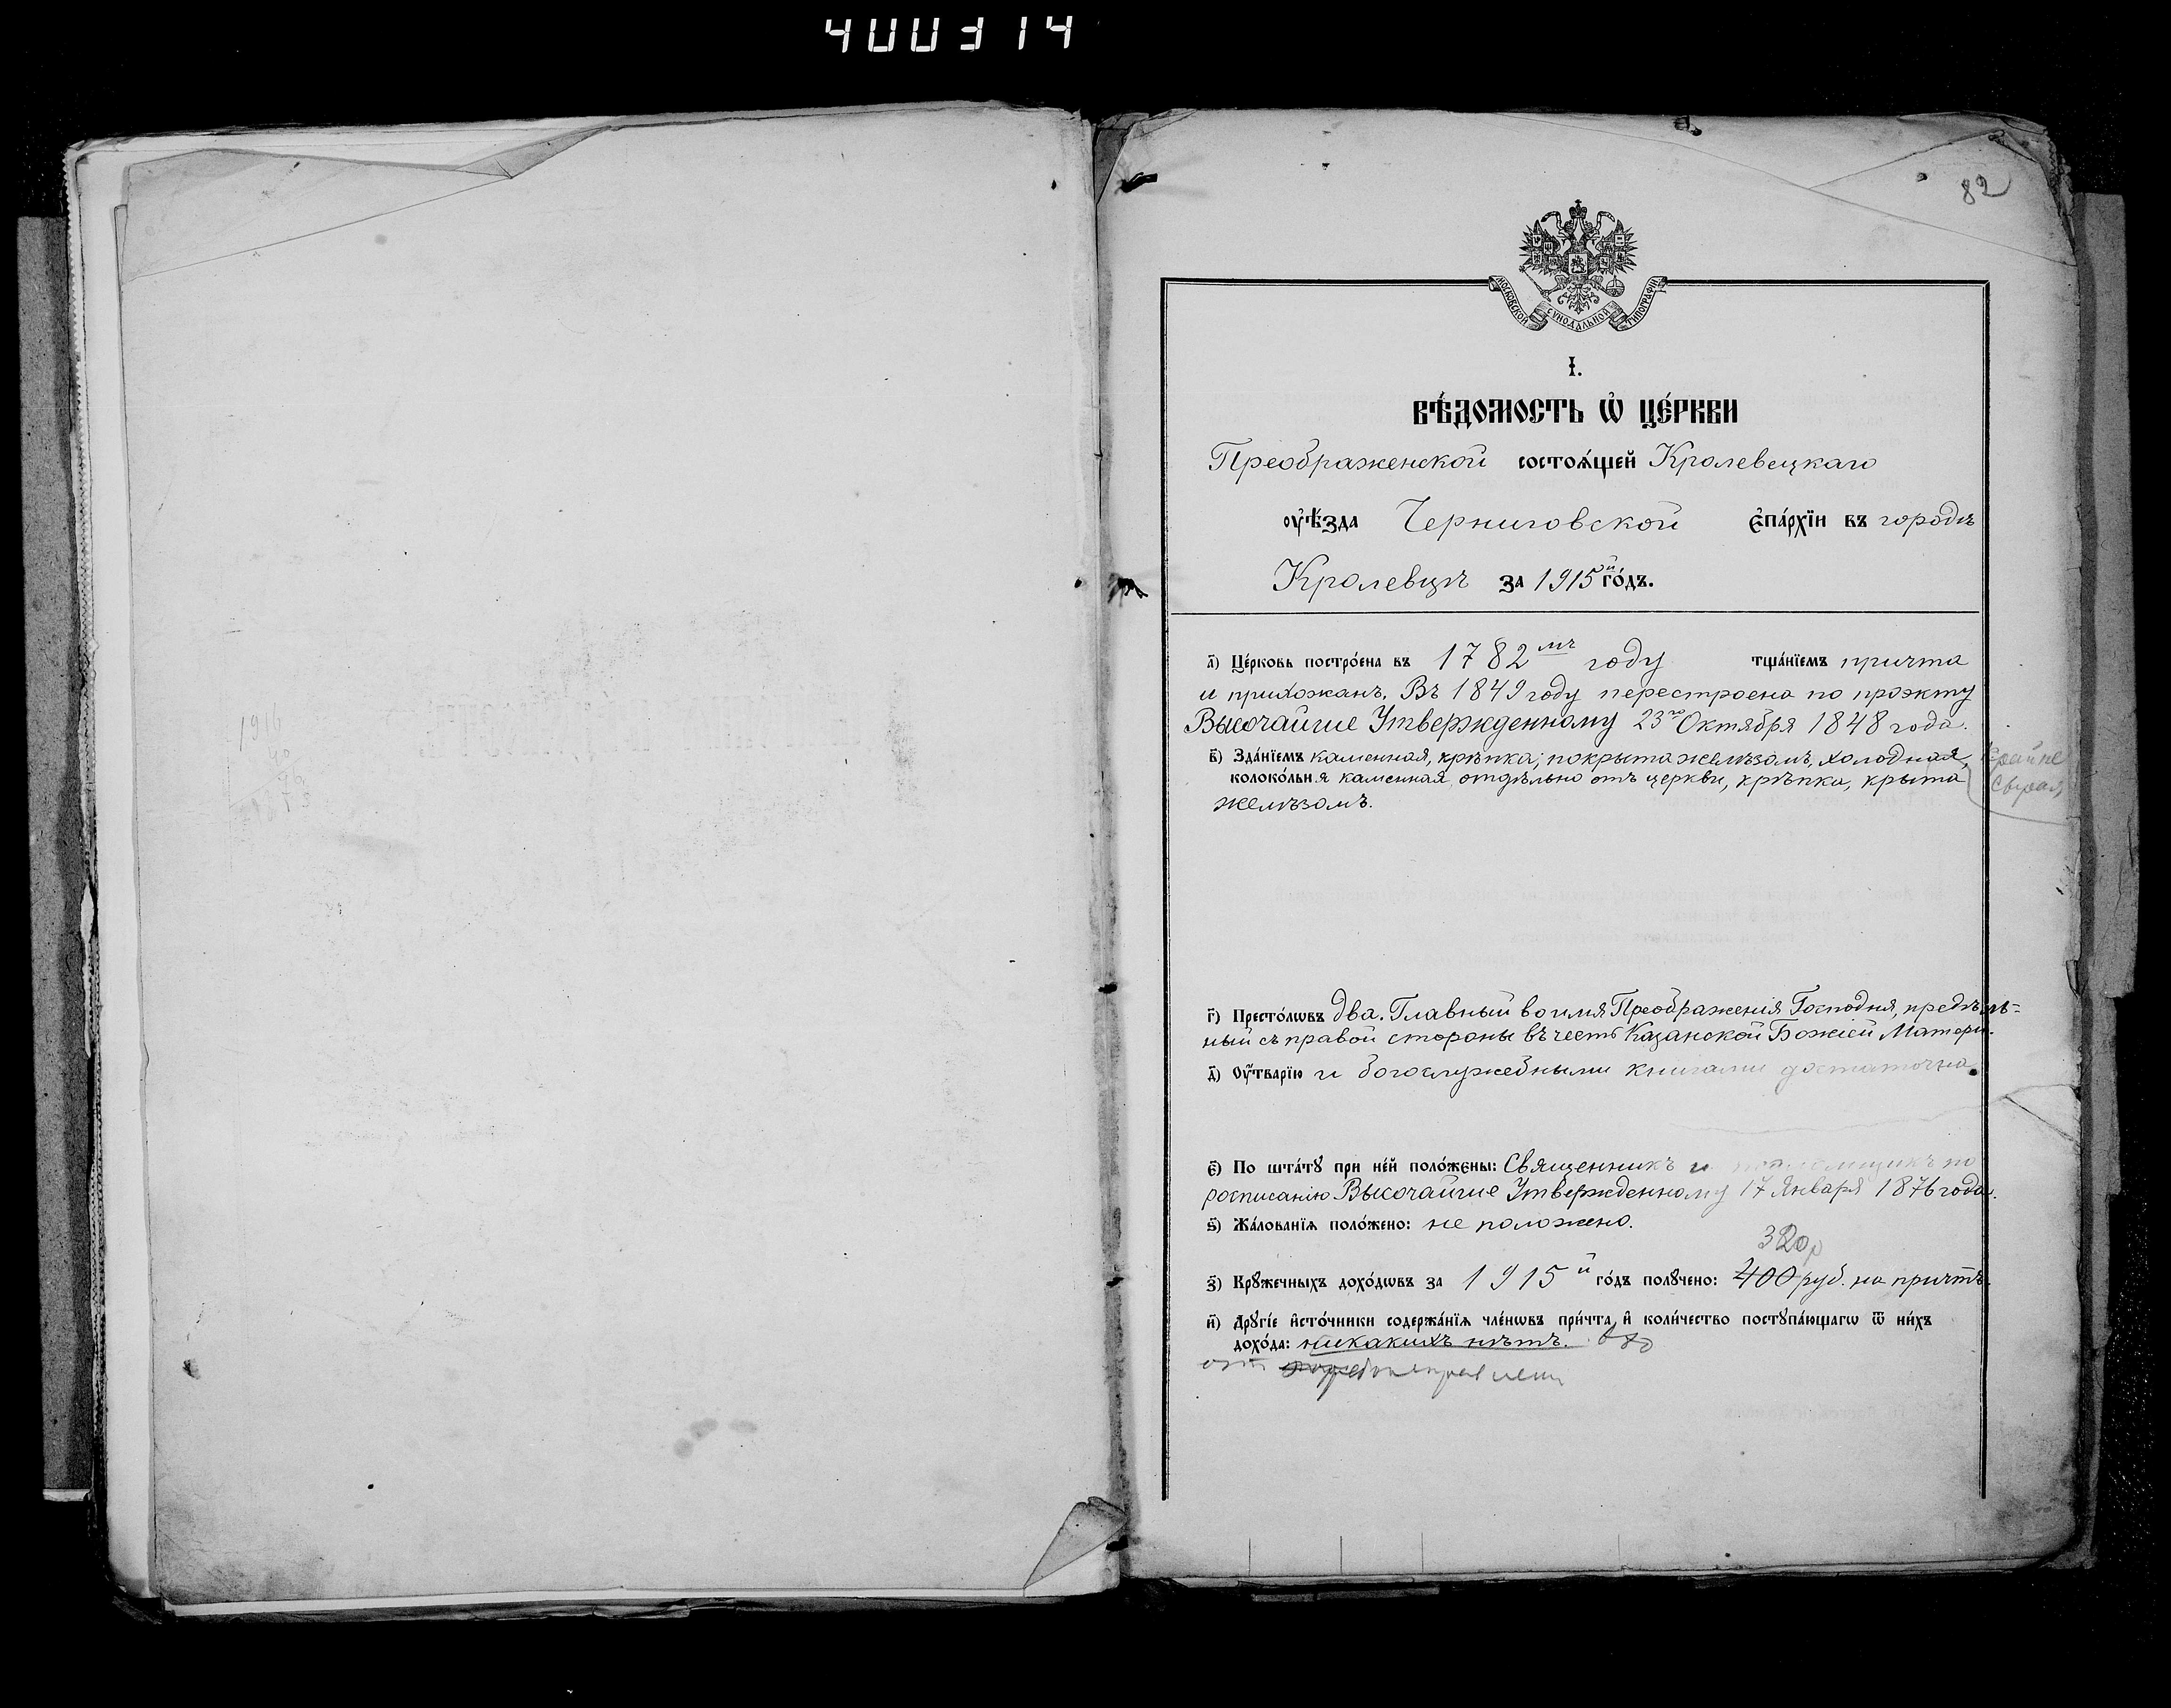 400314
82
1916
МОСКОВСКОЙ СѴНОДАЛЬНОЙ ТИПОГРАФІИ
І.
ВѢ́ДОМОСТЬ Ѡ҆ ЦЕ́РКВИ
Преображенской состоѧ́щей Кролевецкаго
ᲂу҆ѣ́зда Черниговской є҆па́рхїи въ городѣ
Кролевцѣ за 1915й го́дъ.
а҃) Це́рковь постро́ена въ 1782мъ году тща́нїемъ причта
и прихожанъ. Въ 1849 году перестроена по проэкту
Высочайше Утвержденному 23го Октября 1848 года.
в҃) Зда́нїемъ каменная, крѣпка, покрыта желѣзомъ, холодная,
крайне
сырая
колоко́льнѧ каменная отдѣльно отъ церкви, крѣпка, крыта
желѣзомъ.
г҃) Престо́лѡвъ два. Главный во имя Преображенія Господня, придѣль-
ный съ правой стороны въ честь Казанской Божіей Матери.
д҃) Оу҆́тварїю и богослужебными книгами достаточна.
є҃) По шта́тꙋ при не́й поло́жены: Священникъ и псаломщикъ по
росписанію Высочайше Утвержденному 17 Января 1876 года.
ѕ҃) Жа́лованїѧ поло́жено: не положено.
320р
з҃) Крꙋ́жечныхъ дохо́дѡвъ за 1915й го́дъ полꙋ́чено: 400 руб. на причтъ.
и҃) Дрꙋгі́е и҆сто́чники содержа́нїѧ чле́нѡвъ при́чта и҆ коли́чество постꙋпа́ющагѡ ѿ ни́хъ
дохо́да: никакихъ нѣтъ.